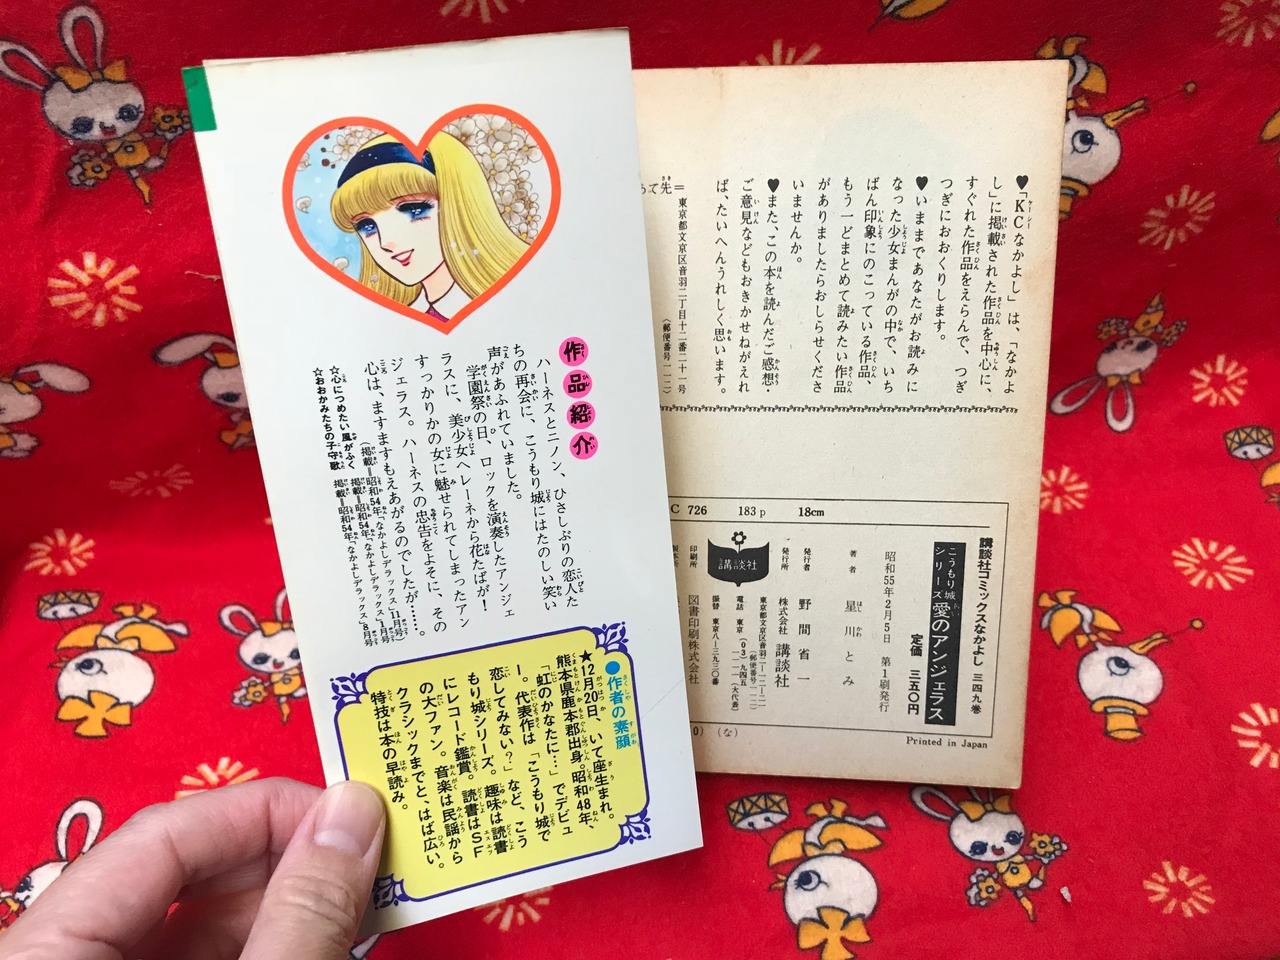 作品紹介
ハーネスとニノン、ひさしぶりの恋人た
ちの再会に、こうもり城にはたのしい笑い
声があふれていました。
学園祭の日、ロックを演奏したアンジェ
ラスに、美少女ヘレーネから花たばが！
すっかりかの女に魅せられてしまったアン
ジェラス。ハーネスの忠告をよそに、その
心は、ますますもえあがるのでしたが……。
（掲載＝昭和54年「なかよしデラックス」11月号）
☆心につめたい風がふく　掲載＝昭和54年「なかよしデラックス」1月号
☆おおかみたちの子守歌　掲載＝昭和54年「なかよしデラックス」8月号
●作者の素顔
★12月20日、いて座生まれ。
熊本県鹿本郡出身。昭和48年、
「虹のかなたに…」でデビュ
ー。代表作は「こうもり城で
恋してみない？」など、こう
もり城シリーズ。趣味は読書
にレコード鑑賞。読書はＳＦ
の大ファン。音楽は民謡から
クラシックまでと、はば広い。
特技は本の早読み。
♥「KCなかよし」は、「なかよ
し」に掲載された作品を中心に、
すぐれた作品をえらんで、つぎ
つぎにおおくりします。
♥いままであなたがお読みに
なった少女まんがの中で、いち
ばん印象にのこっている作品、
もう一どまとめて読みたい作品
がありましたらおしらせくださ
いませんか。
♥また、この本を読んだご感想・
ご意見などもおきかせねがえれ
ば、たいへんうれしく思います。
あて先＝
東京都文京区音羽二丁目十二番二十一号
（郵便番号一一二）
C 726　183p　18cm
講談社コミックスなかよし　三四九巻
こうもり城シリーズ
愛のアンジェラス
定価　三五〇円
昭和55年2月5日　第1刷発行
著者　星川とみ
発行者　野間省一
発行所　株式会社　講談社
東京都文京区音羽二-一二-二一
（郵便番号一一二）
電話　東京（03）九四五-一一一一（大代表）
振替　東京八-三九三〇番
講談社
印刷所　図書印刷株式会社
製本所
0）（な）
Printed in Japan